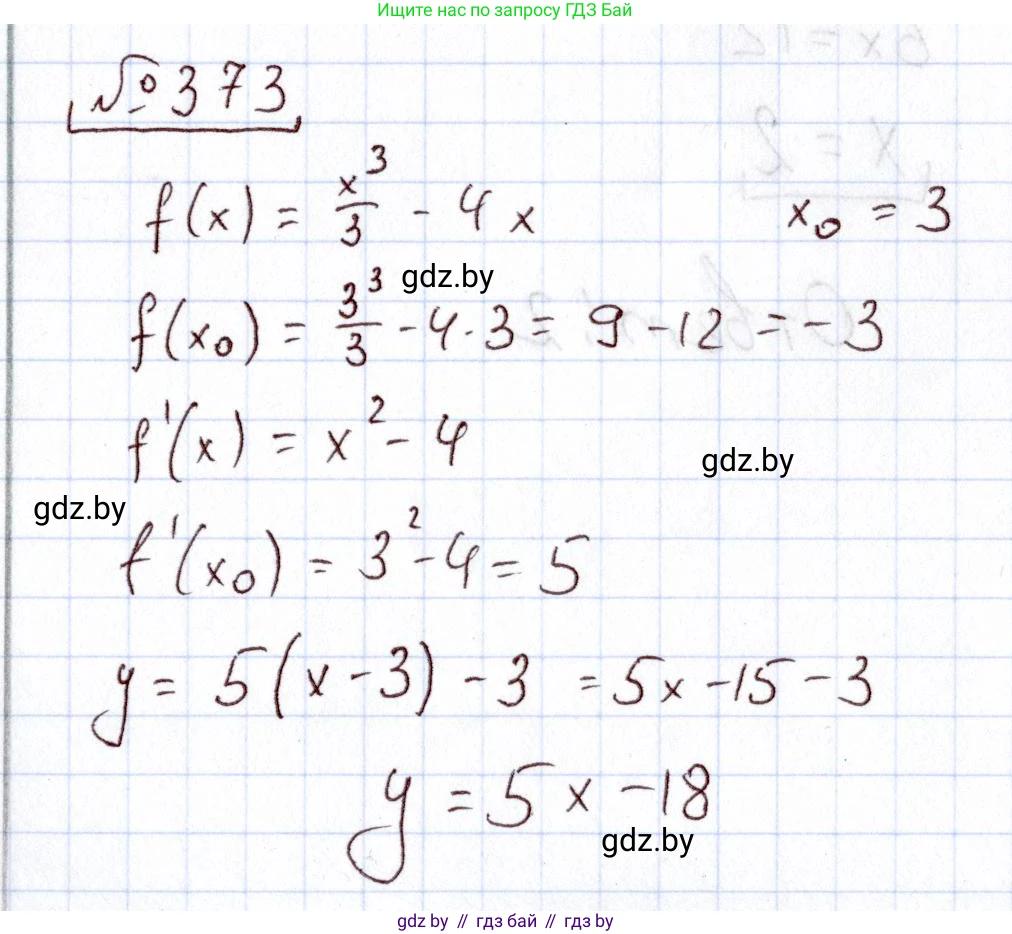 Ищите нас по запросу ГДЗ Бай
№373
f(x) = x³/3 - 4x x₀ = 3
gdz.by
f(x₀) = 3³/3 - 4·3 = 9 - 12 = -3
f'(x) = x² - 4
gdz.by
gdz.by
f'(x₀) = 3² - 4 = 5
y = 5(x - 3) - 3 = 5x - 15 - 3
y = 5x - 18
gdz.by
gdz.by // гдз бай // gdz by